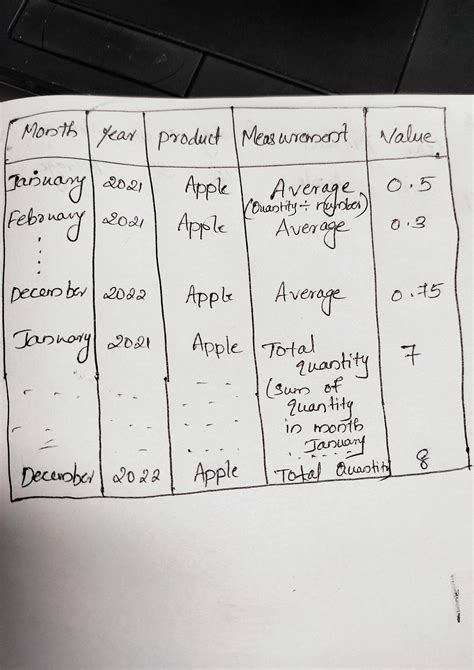 Month Year Product Measurement Value
January 2021 Apple Average 0.5
(Quantity ÷ number)
February 2021 Apple Average 0.3
December 2022 Apple Average 0.75
January 2021 Apple Total 7
quantity
(sum of
quantity
in month
January
December 2022 Apple Total Quantity 8